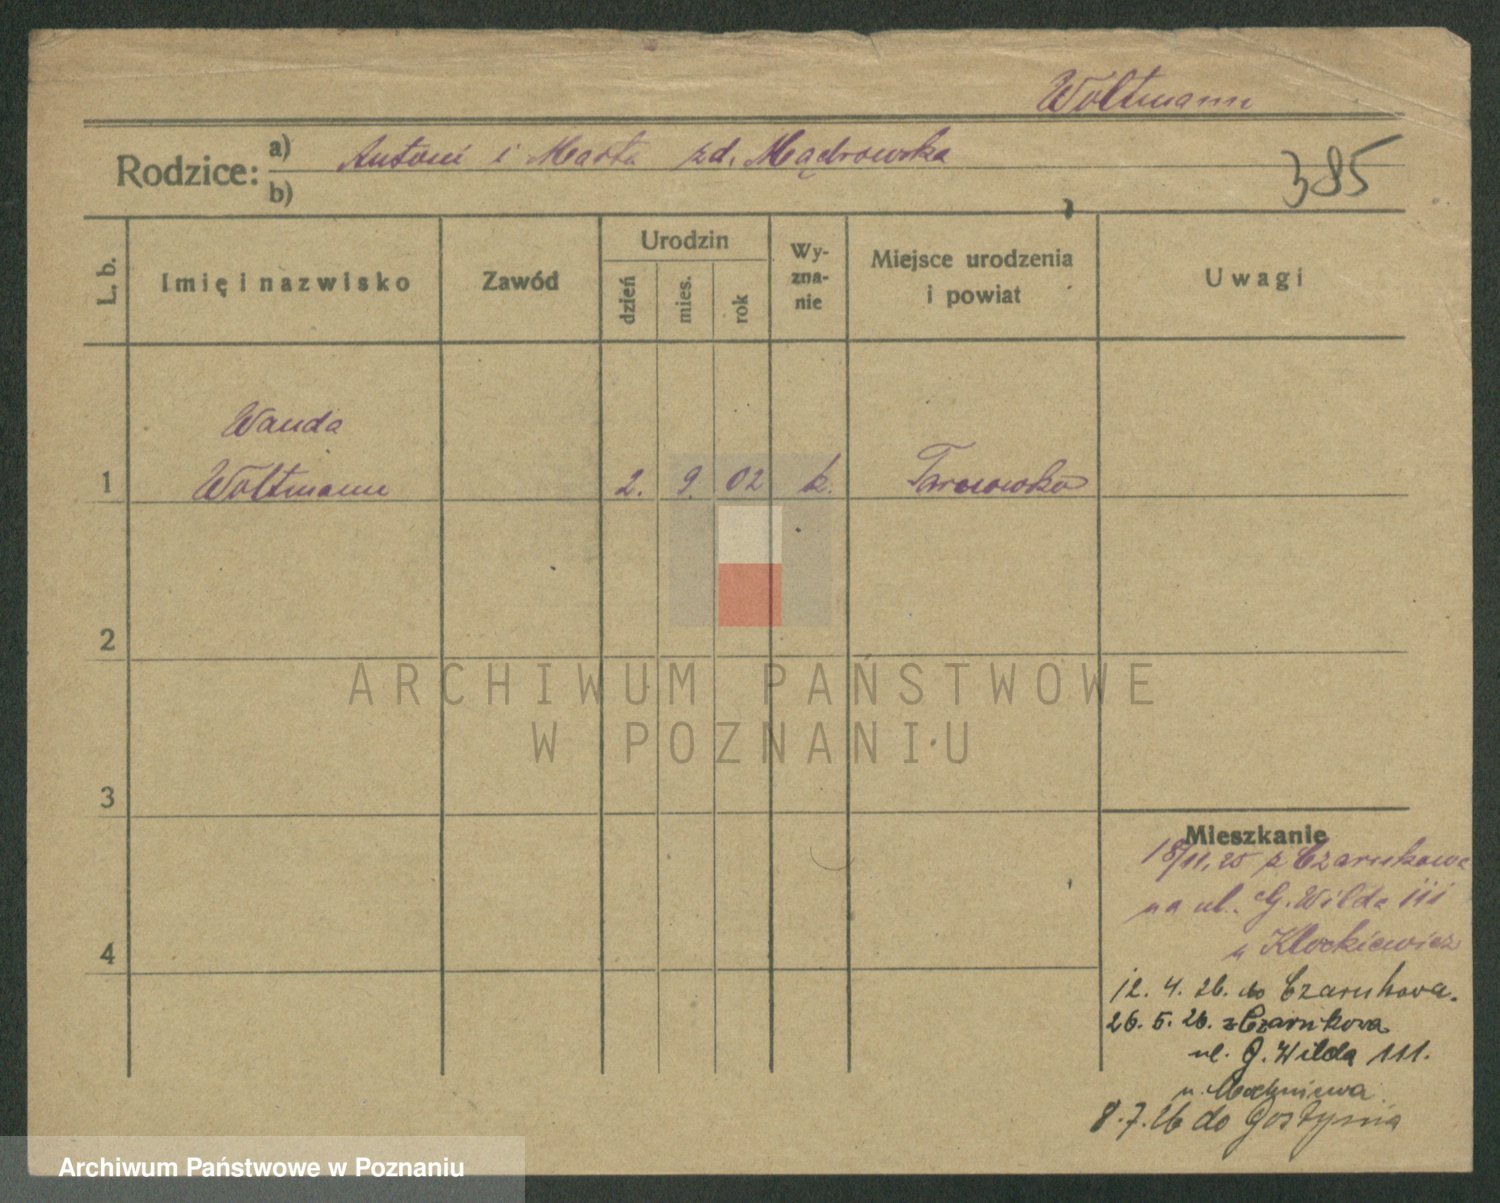 Woltmann
Rodzice: a) Antoni i Marta zd. Mądrowska
b)
385
L. b.
Imię i nazwisko
Zawód
Urodzin
dzień
mies.
rok
Wy-
zna-
nie
Miejsce urodzenia
i powiat
Uwagi
Wanda
1 Woltmann 2. 9. 02 k. Tarnowko
2
3
4
Mieszkanie
18/11.25 z Czarnkowa
na ul. G. Wilda 111
u Klockiewicz
12. 4. 26. do Czarnkowa.
26. 5. 26. z Czarnkowa
ul. G. Wilda 111.
u
8. 7. 26 do Gostynia
ARCHIWUM PAŃSTWOWE
W POZNANIU
Archiwum Państwowe w Poznaniu